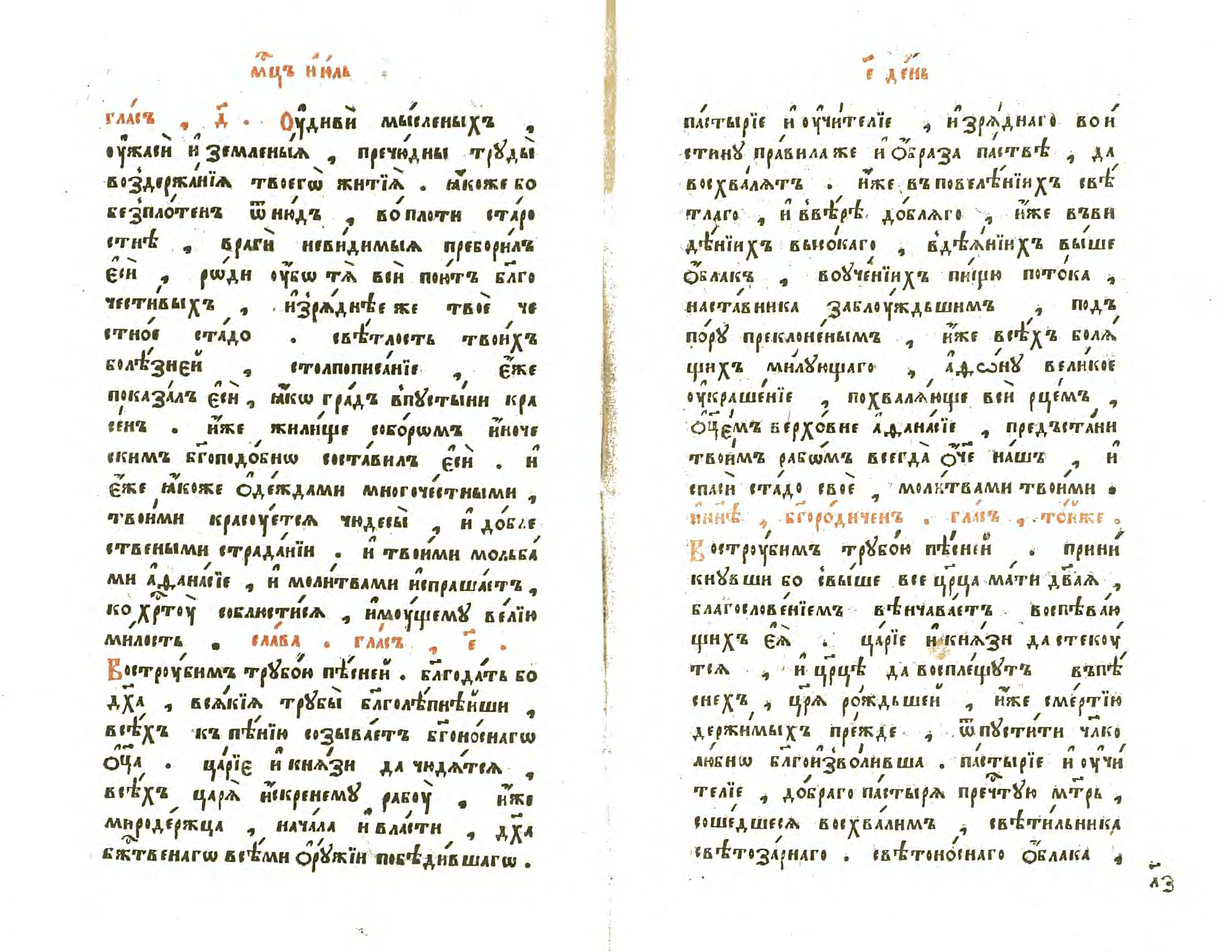 мц҃ъ и҆ю́ль
гла́съ , д҃ . Оу҆диви̑ мы́сленыхъ ,
оу҆жасѝ и҆ земле́ныѧ , пречю́дны трꙋды̀
воздержа́нїѧ твоегѡ̀ житїѧ̀ . ꙗ҆́коже бо
безпло́тенъ ѿню́дъ , во́ плоти ста́ро
стнѣ , врагѝ невѝдимыѧ пребори́лъ
є҆сѝ , рѡ́ди оу҆́бѡ тѧ̀ всѝ пою́тъ бл҃го
чести́выхъ , и҆зрѧ́днѣе же твоѐ че
стно́е ста́до . свѣ́тлость твои́хъ
болѣ́зней , столпописа́нїе , є҆́же
показа́лъ є҆сѝ , ꙗ҆́кѡ гра́дъ в̾пꙋсты́ни кра
се́нъ . и҆́же жили́ще собо́рѡмъ и҆́ноче
скимъ бг҃оподо́бнѡ соста́вилъ є҆сѝ . и҆
є҆́же ꙗ҆́коже ѻ҆де́ждами многоче́стными ,
твои́ми красꙋ́етсѧ чюдесы̀ , и҆ до́бле
ствеными страда́нїи . и҆ твои́ми мольба́
ми а҆ѳана́сїе , и҆ моли́твами и҆спраша́етъ ,
ко хрⷭ҇тоу̀ соблюсти́сѧ , и҆мѹ́щемꙋ ве́лїю
ми́лость . сла́ва . гла́съ , є҃ .
Востроу́бимъ трꙋбо́ю пѣ́сней . бл҃года́ть бо
дх҃а , всѧ́кїѧ трꙋбы̀ бл҃голѣ́пнѣйши ,
всѣ́хъ къ пѣ́нїю созыва́етъ бг҃оно́снагѡ
ѻ҆ц҃а̀ . ца́рїе и҆ кнѧ́зи да чюдѧ́тсѧ ,
всѣ́хъ царѧ̀ и҆́скренемꙋ рабоу̀ , и҆́же
миродержца , нача́ла и҆ вла́сти , дх҃а
бж҃твенагѡ всѣ́ми ѻ҆рꙋ́жїи побѣди́вшагѡ .
є҃ де́нь
па́стырїе и҆ оу҆чи́телїе , и҆зрѧ́днаго вои́
стинꙋ пра́вила же и҆ ѻ҆́браза па́ствѣ , да
восхва́лѧтъ . и҆́же въ повелѣ́нїихъ свѣ́
тлаго , и҆ в̾вѣ́рѣ до́блѧго , и҆́же въви
дѣ́нїихъ высо́каго , в̾дѣѧ́нїихъ вы́ше
ѻ҆́блакъ , воуче́нїихъ пи́щꙋ пото́ка ,
наста́вника заблоу́ждьшимъ , подъ
по́рꙋ преклоне́нымъ , и҆́же всѣ́хъ болѧ́
щихъ ми́лꙋющаго , а҆ѳѡ́нꙋ вели́кое
оу҆краше́нїе , похвалѧ́юще всѝ рце́мъ ,
ѻ҆ц҃е́мъ верхо́вне а҆ѳана́сїе , предъста́ни
твои́мъ рабѡ́мъ всегда̀ ѻ҆́ч҃е на́шъ , и҆
спасѝ ста́до своѐ , моли́твами твои́ми .
и҆ нн҃ѣ , бг҃оро́диченъ . гла́съ , то́йже .
Востроу́бимъ трꙋбо́ю пѣ́сней . прини́
кнꙋвши бо свы́ше все цр҃ца ма́ти дв҃аѧ ,
благослове́нїемъ вѣнчава́етъ воспѣва́ю
щихъ є҆ѧ̀ . ца́рїе и҆ кнѧ́зи да стекоу́
тсѧ , и҆ цр҃цѣ да воспле́щꙋтъ въ пѣ́
снехъ , цр҃ѧ ро́ждьшей , и҆́же сме́ртїю
держи́мыхъ пре́жде , ѿпꙋсти́ти чл҃ко
лю́бнѡ бл҃гоизво́ливша . па́стырїе и҆ оу҆чи́
телїе , до́браго па́стырѧ преч҃тꙋю мт҃рь ,
соше́дшесѧ восхва́лимъ , свѣти́льника
свѣтоза́рнаго . свѣтоно́снаго ѻ҆́блака ,
л҃з